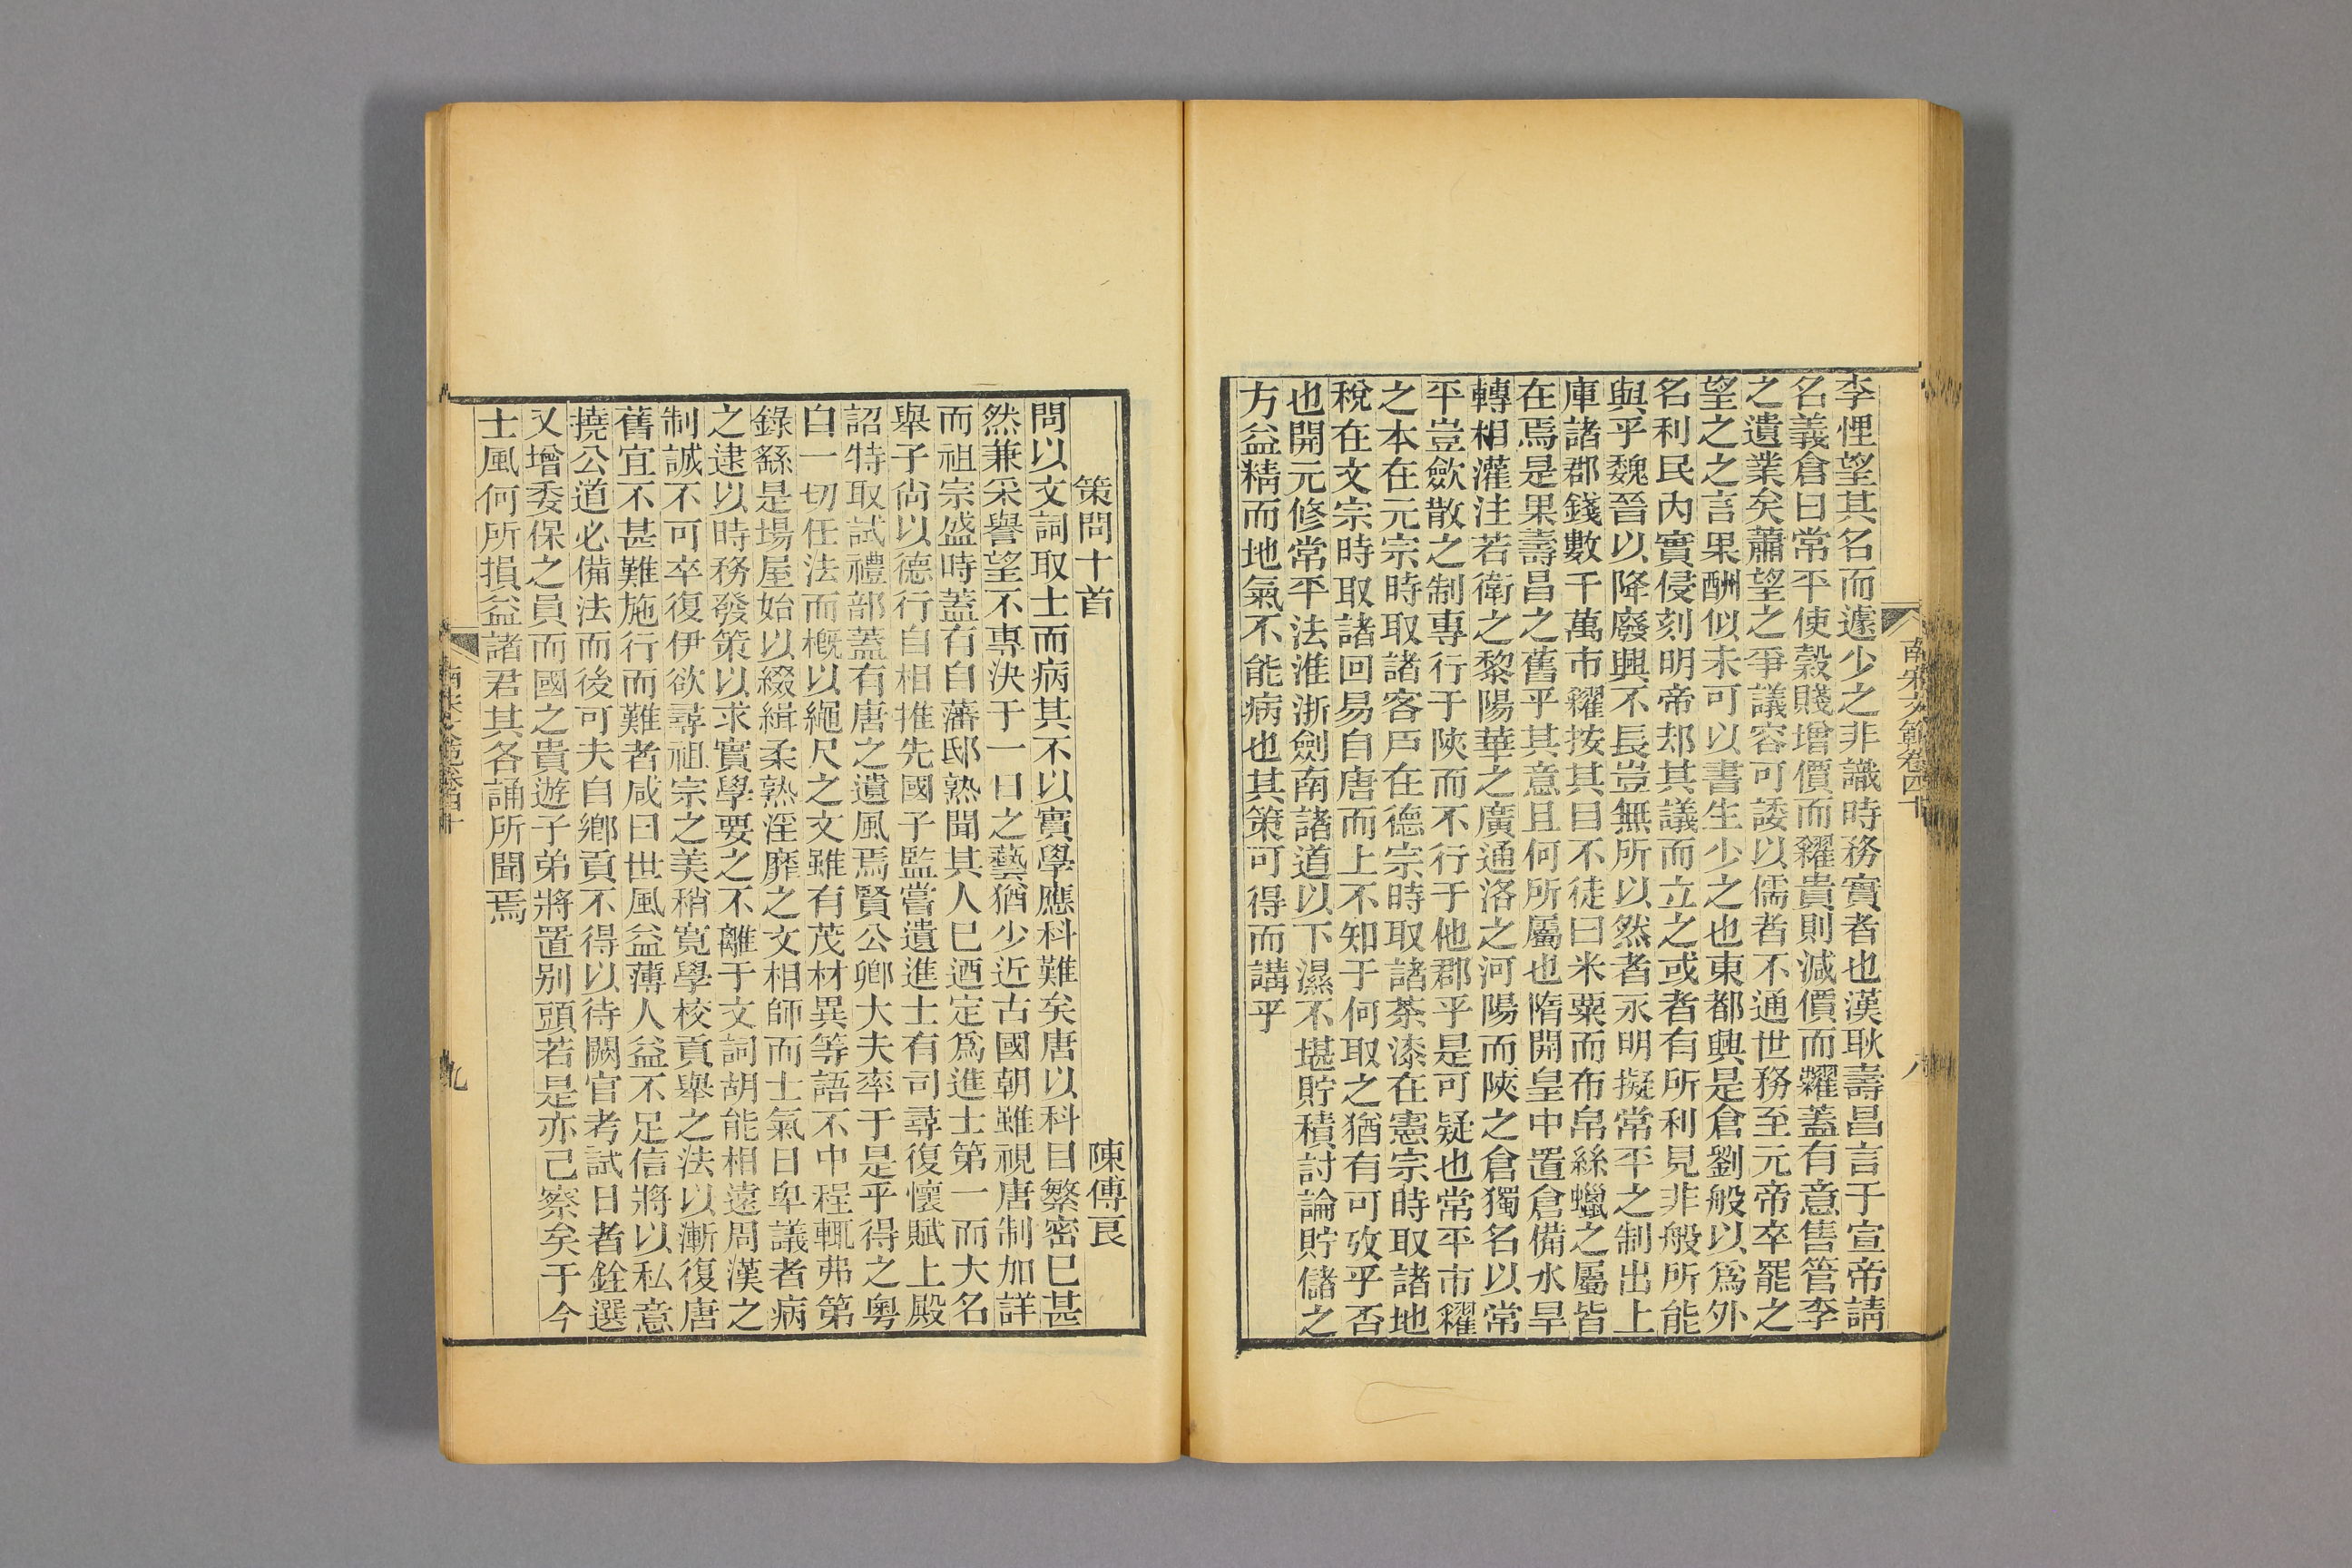 李悝望其名而遽少之非識時務實者也漢耿壽昌言于宣帝請
名義倉曰常平使穀賤增價而糴貴則減價而糶蓋有意售管李
之遺業矣蕭望之爭議容可諉以儒者不通世務至元帝卒罷之
望之之言果酬似未可以書生少之也東都興是倉劉般以爲外
名利民內實侵刻明帝却其議而立之或者有所利見非般所能
與乎魏晉以降廢興不長豈無所以然者永明擬常平之制出上
庫諸郡錢數千萬市糴按其目不徒曰米粟而布帛絲蠟之屬皆
在焉是果壽昌之舊乎其意且何所屬也隋開皇中置倉備水旱
轉相灌注若衛之黎陽華之廣通洛之河陽而陝之倉獨名以常
平豈歛散之制專行于陝而不行于他郡乎是可疑也常平市糴
之本在元宗時取諸客戶在德宗時取諸茶漆在憲宗時取諸地
稅在文宗時取諸回易自唐而上不知于何取之猶有可攷乎否
也開元修常平法淮浙劍南諸道以下濕不堪貯積討論貯儲之
方益精而地氣不能病也其策可得而講乎
南宋文範卷四十
八
策問十首
陳傅良
問以文詞取士而病其不以實學應科難矣唐以科目繁密巳甚
然兼采譽望不專決于一日之藝猶少近古國朝雖視唐制加詳
而祖宗盛時蓋有自藩邸熟聞其人巳迺定爲進士第一而大名
舉子尙以德行自相推先國子監嘗遺進士有司尋復懷賦上殿
詔特取試禮部蓋有唐之遺風焉賢公卿大夫率于是乎得之粵
自一切任法而槪以繩尺之文雖有茂材異等語不中程輒弗第
錄繇是場屋始以綴緝柔熟淫靡之文相師而士氣日卑議者病
之逮以時務發策以求實學要之不離于文詞胡能相遠周漢之
制誠不可卒復伊欲尋祖宗之美稍寬學校貢舉之法以漸復唐
舊宜不甚難施行而難者咸曰世風益薄人益不足信將以私意
撓公道必備法而後可夫自鄉貢不得以待闕官考試日者銓選
又增委保之員而國之貴遊子弟將置别頭若是亦己察矣于今
士風何所損益諸君其各誦所聞焉
南宋文範卷四十
九